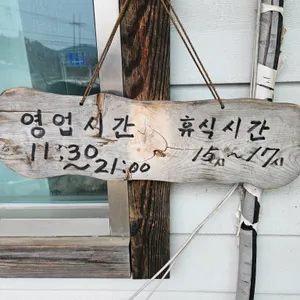 영업시간
11:30
~21:00
휴식시간
15시~17시